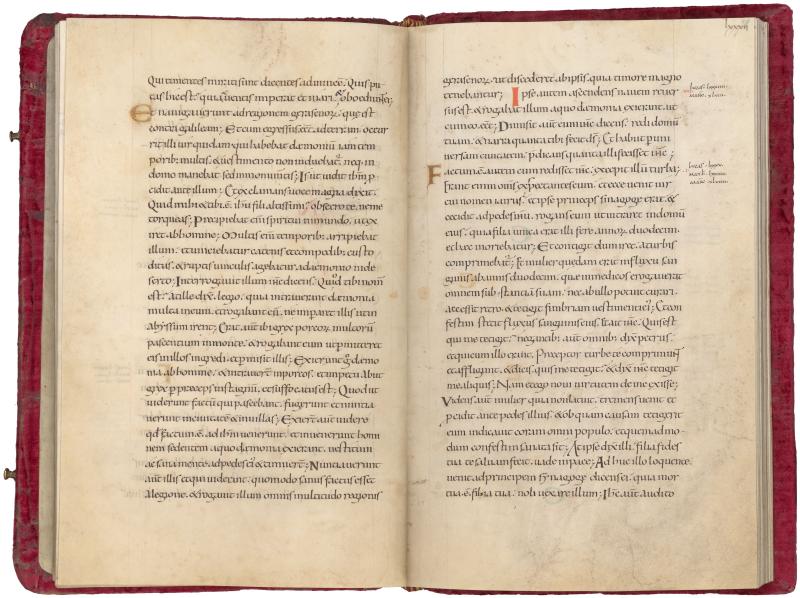 Qui timentes mirati sunt dicentes ad inuicē. Quis pu
tas hic est. quia & uentis imperat et mari & oboediunt ei;
Et nauigauerunt ad regionem gerasenoꝝ. que est
contra galileam; Et cum egressus eēt ad terram. occur
rit illi uir quidam qui habebat daemonium iam tem
porib; multis. & uestimento non induebat'. neq; in
domo manebat sed in monumentis; Is ut uidit ihm p
cidit ante illum; Et exclamans uoce magna dixit.
Quid mihi & tibi ē. ihu fili altissimi. obsecro te. ne me
torqueas; Precipiebat enī spiritui inmundo. ut exi
ret ab homine; Multis enī temporib; arripiebat
illum. et uinciebatur catenis et compedib; custo
ditus. & ruptis uinculis agebatur a daemonio in de
serto; Interrogauit illum ihc dicens. Quid tibi nom
est. at ille dix̄. legio. quia intrauerunt daemonia
multa in eum. et rogabant eū. ne imparet illis ut in
abyssum irent; Erat aūt ibi grex porcoꝝ. multorū
pascentium in monte. & rogabant eum ut pmitteret
eis in illos ingredi. et pmisit illis; Exierunt g daemo
nia ab homine. & intrauert in porcos. et impetu abiit
grex p preceps in stagnū. et suffocatus est; Quod ut
uiderunt factū qui pascebant. fugerunt et nuntia
uerunt in ciuitatē & in uillas; Exiert aūt uidere
qd factum ē. & ad ihm uenerunt. et inuenerunt homi
nem sedentem a quo daemonia exierant. uestitum
ac sana mente. ad pedes ei'. & timuert; Nuntiauerunt
aūt illis et qui uiderunt quomodo sanus factus esset
a legione. & rogauit illum omnis multitudo regionis
lxxxii
gerasenoꝝ. ut discederet ab ipsis. quia timore magno
tenebantur; Ipse autem ascendens nauem reuer
sus est. & rogabat illum a quo daemonia exierant. ut
cum eo eēt; Dimisit aūt eum ihc dicens. redi domū
tuam. & narra quanta tibi fecit ds; Et habiit p uni
uersam ciuitatem. pdicans quanta illi fecisset ihc;
Factum ē autem cum redisset ihc. excepit illū turba;
Erant enim omīs expectantes eum. et ecce uenit uir
cui nomen iairus. et ipse princeps sinagoge erat. &
cecidit ad pedes ihu. rogans eum ut intraret in domū
eius. quia filia unica erat illi fere annoꝝ duodecim.
et haec moriebatur; Et contigit dum iret. a turbis
comprimebat'; Et mulier quedam erat in fluxu san
guinis ab annis duodecim. que in medicos erogauerat
omnem substantiā suam. nec ab ullo potuit curari.
accessit retro. & tetigit fimbriam uestimenti ei'; Et con
festim stetit fluxus sanguinis eius. & ait ihc. Quis est
qui me tetigit. negantib; aūt omnib; dix̄ petrus.
et qui cum illo erant. Preceptor turbe te comprimunt
et affligunt. & dicis. quis me tetigit. & dix̄ ihc tetigit
me aliquis; Nam et ego noui uirtutem de me exisse;
Videns aūt mulier quia non latuit. tremens uenit et
pcidit ante pedes illius. & ob quam causam tetigerit
eum indicauit coram omni populo. et quem admo
dum confestim sanata sit; At ipse dix̄ illi. filia fides
tua te saluam fecit. uade in pace; Adhuc illo loquente.
uenit ad principem synagoge dicens ei. quia mor
tua ē filia tua. noli uexare illum; Ihc aūt audito